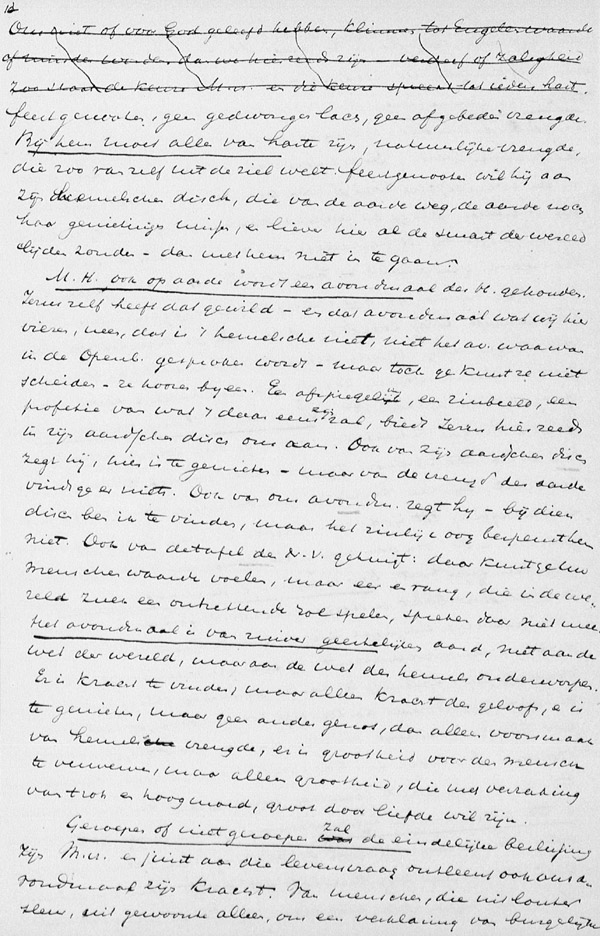 12
Ons niet of voor God geleefd hebben, klimmen tot Engelen waarde
of minder worden dan we hier reeds zijn - verderf of Zaligheid
Zoo staat de keuze M.H. en die keuze spreekt tot ieders hart.
feestgenooten, geen gedwongen lach, geen afgebeden vreugde.
Bij hem moet alles van harte zijn, natuurlijke vreugde,
die zoo van zelf uit de ziel welt. feestgenooten wil hij aan
zijn hemelschen disch, die van de aarde weg, de aarde noch
haar genietingen missen, en liever hier al de smart der wereld
lijden zonder - dan met hem niet in te gaan.
M.H. ook op aarde wordt een avondmaal des H. gehouden.
Jezus zelf heeft dat gewild - en dat avondmaal wat wij hier
vieren, neen, dat is 't hemelsche niet, niet het av. waarvan
in de Openb. gesproken wordt - maar toch ge kunt ze niet
scheiden - ze hooren bijeen. Een afspiegeling, een zinbeeld, een
profetie van wat 't daar eens zijn zal, biedt Jezus hier reeds
in zijn aardschen disch ons aan. Ook van zijn aardschen disch
zegt hij, hier is te genieten - maar van de vreugd der aarde
vindt ge er niets. Ook van ons avondm. zegt hij - bij dien
disch ben ik te vinden, maar het zinlijk oog bespeurt hem
niet. Ook van de tafel des N.V. getuigt: daar kunt ge uw
menschenwaarde voelen, maar eer en rang, die in de we-
reld zulk een ontzettende rol spelen, spreken daar niet mee.
Het avondmaal is van zuiver geestelijken aard, niet aan de
wet der wereld, maar aan de wet des hemels onderworpen.
Er is kracht te vinden, maar alleen kracht des geloofs, er is
te genieten, maar geen ander genot, dan alleen voorsmaak
van hemelvreugde, er is grootheid voor den mensch
te verwerven, maar alleen grootheid, die met verzaking
van trots en hoogmoed, groot door liefde wil zijn.
Geroepen of niet geroepen zal de eindelijke beslissing
zijn M.H. en juist aan die levensvraag ontleent ook ons a-
vondmaal zijn kracht. Van menschen, die uit louter
sleur, uit gewoonte alleen, om een verklaring van burgelijke